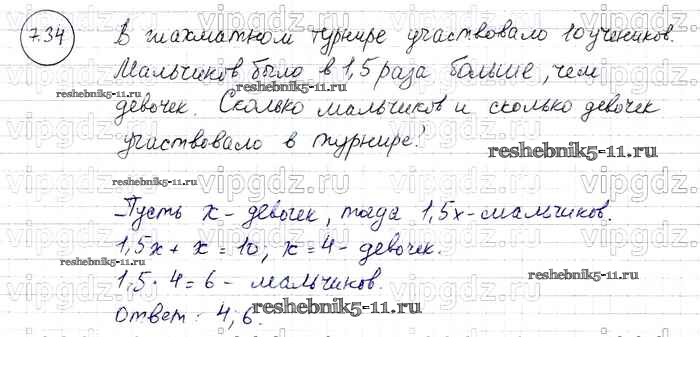 7.34 В шахматном турнире участвовало 10 учеников.
Мальчиков было в 1,5 раза больше, чем
девочек. Сколько мальчиков и сколько девочек
участвовало в турнире?
Пусть x - девочек, тогда 1,5x - мальчиков.
1,5x + x = 10; x = 4 - девочек.
1,5 · 4 = 6 - мальчиков.
Ответ: 4; 6.
reshebnik5-11.ru
reshebnik5-11.ru
reshebnik5-11.ru
reshebnik5-11.ru
reshebnik5-11.ru
reshebnik5-11.ru
vipgdz.ru